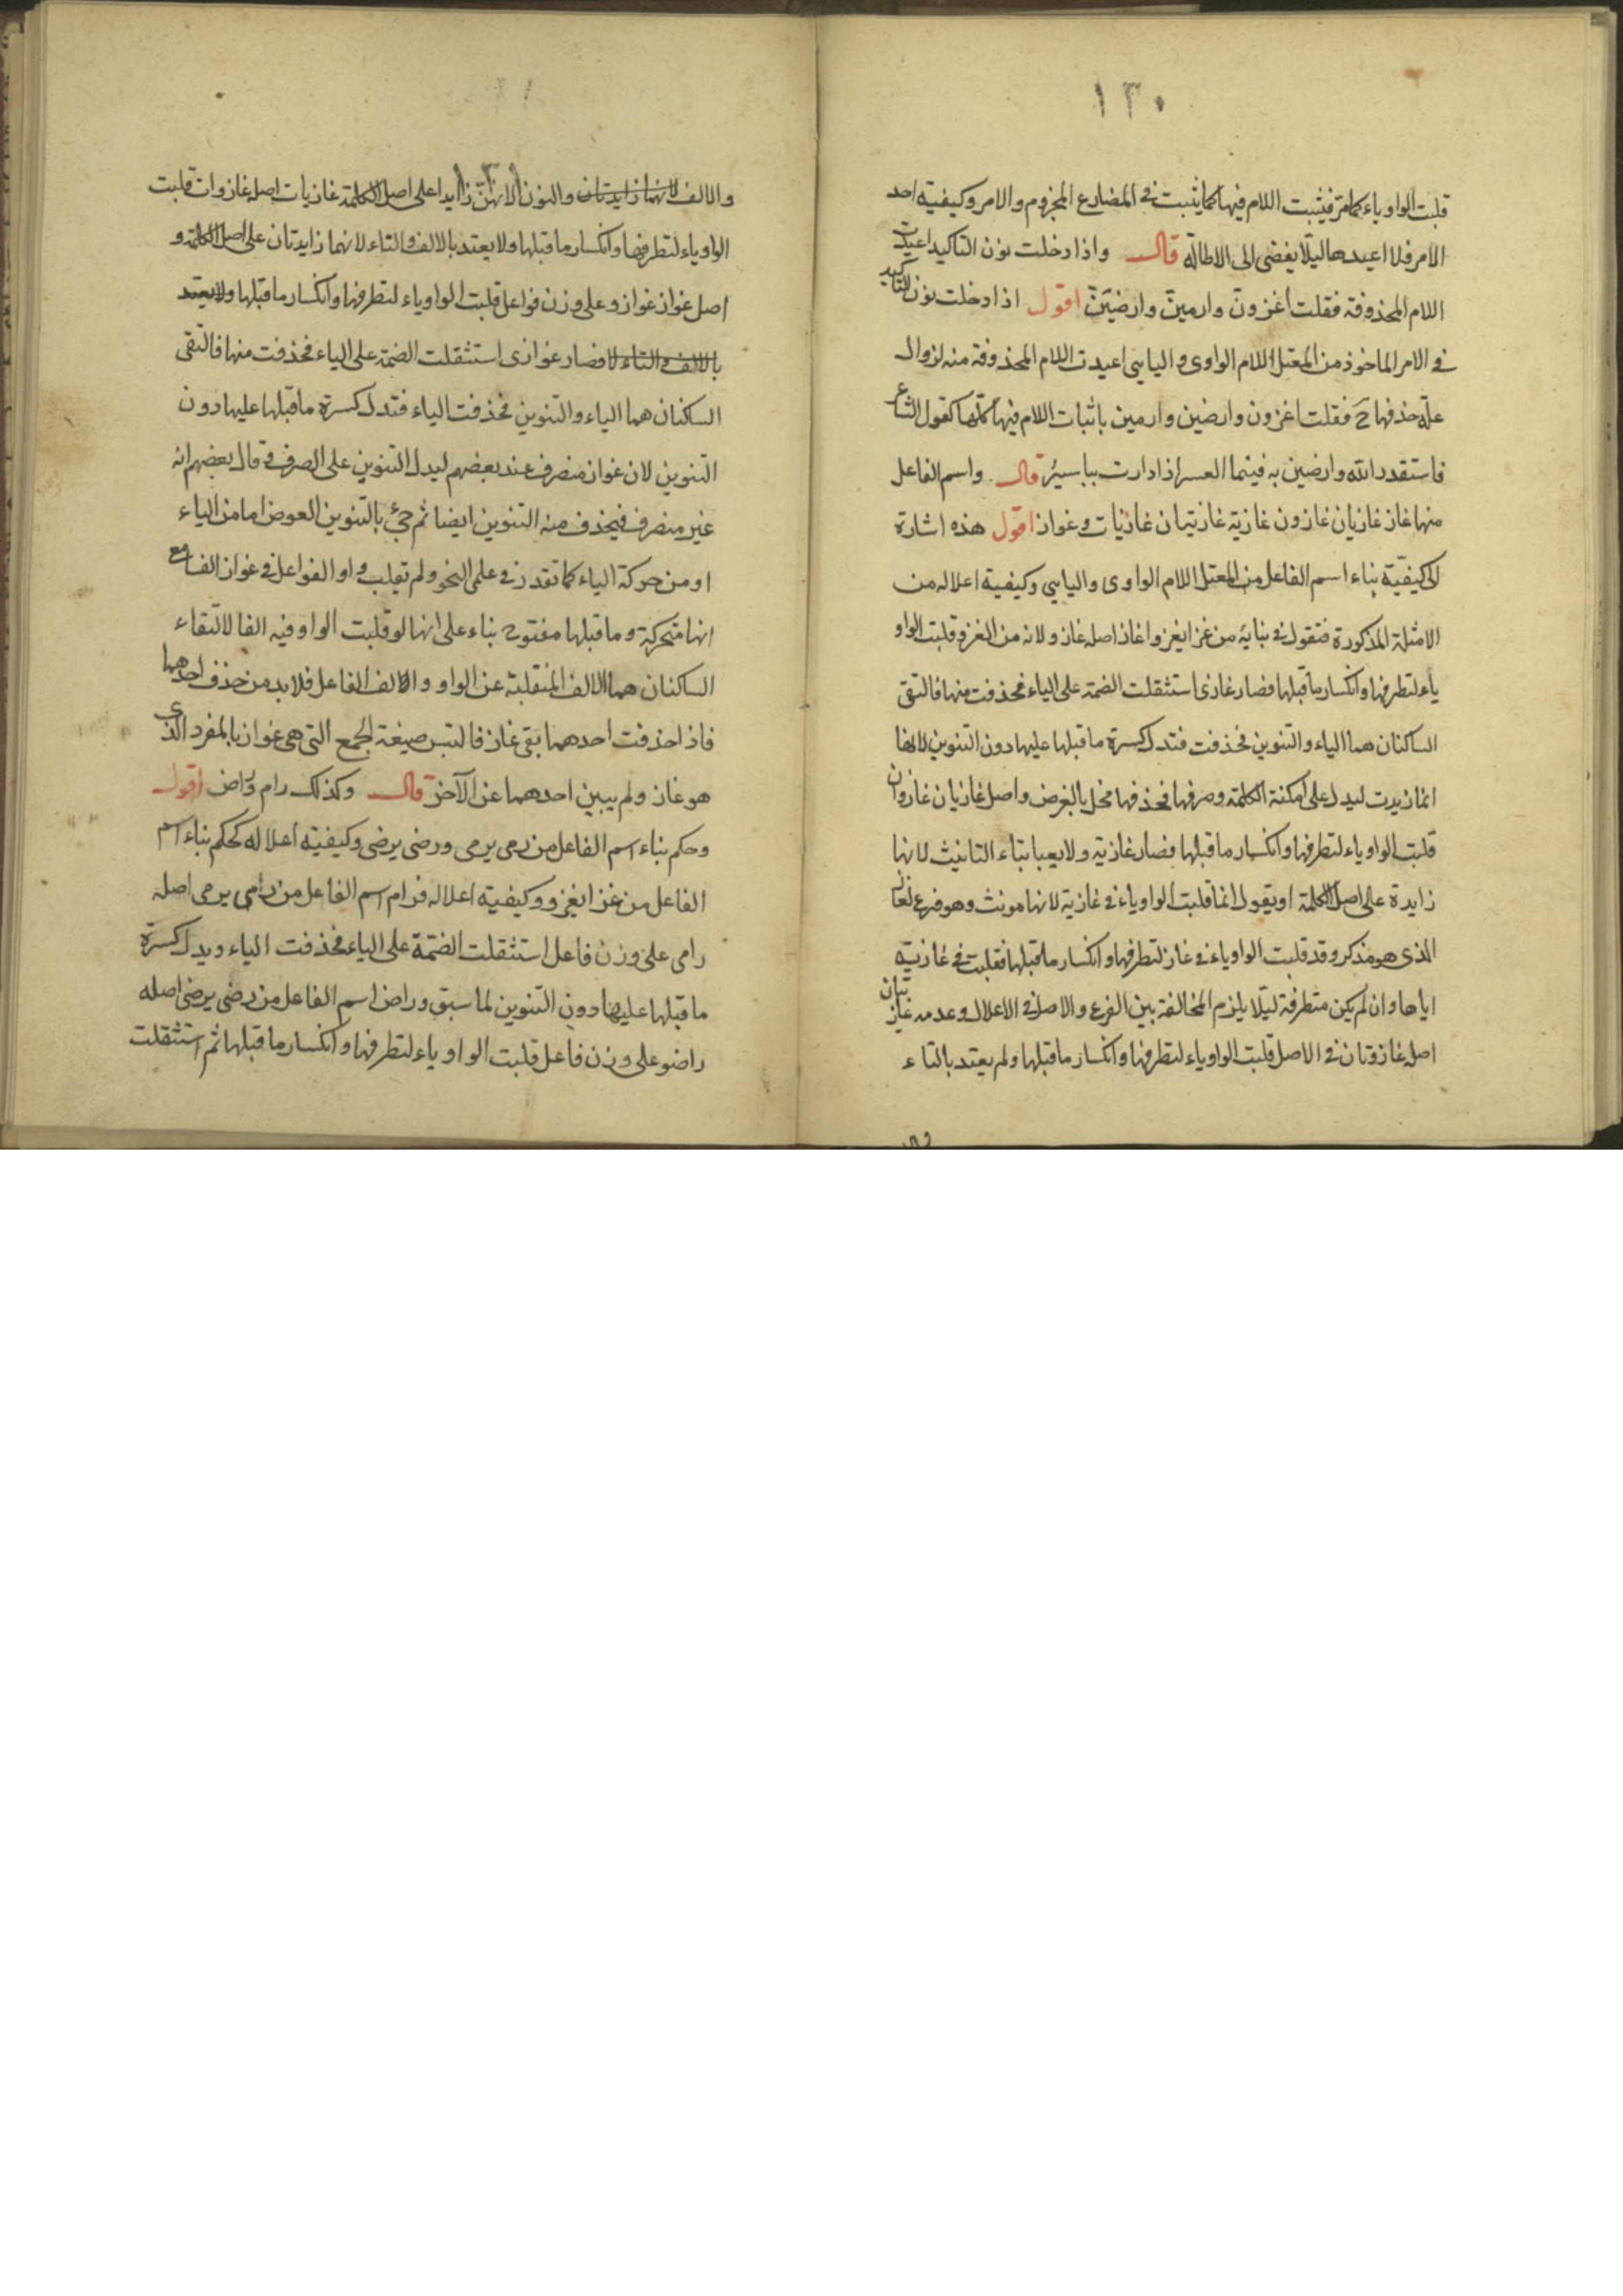 ١٣٠
قلبت الواو ياء كما مر فيثبت اللام فيها كما يثبت في المضارع المجزوم والامر وكيفية اخذ
الامر فلا اعيدها ليلا يفضى الى الاطالة قال واذا دخلت نون التاكيد اعيدت
اللام المحذوفة فقلت اغزون وارمين وارضين اقول اذا دخلت نون التاكيد
في الامر الماخوذ من المعتل اللام الواوى و اليايى اعيدت اللام المحذوفة منه لزوال
علة حذفها ح فقلت اغزون وارضين وارمين باثبات اللام فيها كلها كقول الشاعر
فاستقدر الله وارضين به فبينما العسر اذا دارت مياسير قال واسم الفاعل
منها غاز غازيان غازون غازية غازيتان غازيات وغواز اقول هذه اشارة
الى كيفية بناء اسم الفاعل من المعتل اللام الواوى واليايى وكيفية اعلاله من
الامثلة المذكورة فتقول في بنايه من غزا يغزو اغاز اصله غازو لانه من الغزو قلبت الواو
ياء لتطرفها وانكسار ما قبلها فصار غازى استثقلت الضمة على الياء فحذفت منها فالتقى
الساكنان هما الياء والتنوين فحذفت فتدل كسرة ما قبلها عليها دون التنوين لانها
انما زيدت ليدل على امكنة الكلمة وصرفها فحذفها مخل بالغرض واصل غازيان غازوان
قلبت الواو ياء لتطرفها وانكسار ما قبلها فصار غازية ولا يعبا بتاء التانيث لانها
زايدة على اصل الكلمة او يقول انما قلبت الواو ياء في غازية لانها مونث وهو فرع لغاز
الذى هو مذكر وقد قلبت الواو ياء في غاز لتطرفها وانكسار ما قبلها فقلبت في غازية
اياها وان لم يكن متطرفة ليلا يلزم المخالفة بين الفرع والاصل في الاعلال وعدمه غازيتان
اصله غازوتان في الاصل قلبت الواو ياء لتطرفها وانكسار ما قبلها ولم يعتد بالتاء
والالف لانهما زايدتان والنون لانهن زايدا على اصل الكلمة غازيات اصله غازوات قلبت
الواو ياء لتطرفها وانكسار ما قبلها ولا يعتد بالالف والتاء لانهما زايدتان على اصل الكلمة و
اصل غواز غوازو على وزن فواعل قلبت الواو ياء لتطرفها وانكسار ما قبلها ولا يعتد
بالالف والتاء لا فصار غوازى استثقلت الضمة على الياء فحذفت منها فالتقى
الساكنان هما الياء والتنوين فحذفت الياء فتدل كسرة ما قبلها عليها دون
التنوين لان غواز منصرف عند بعضهم ليدل التنوين على الصرف وقال بعضهم انه
غير منصرف فيحذف منه التنوين ايضا ثم جئ بالتنوين العوض اما من الياء
او من حركة الياء كما تقدر في علمى النحو ولم تقلب واو الفواعل في غواز الفا مع
انها متحركة وما قبلها مفتوح بناء على انها لو قلبت الواو فيه الفا لالتقاء
الساكنان هما الالف المنقلبة عن الواو والالف الفاعل فلا بد من حذف احدهما
فاذا حذفت احدهما بقى غاز فالتبس صيغة الجمع التى هى غواز بالمفرد الذى
هو غاز ولم يبين احدهما عن الآخر قال وكذلك رام وراض اقول
وحكم بناء اسم الفاعل من رمى يرمى ورضى يرضى وكيفية اعلاله كحكم بناء اسم
الفاعل من غزا يغزو وكيفية اعلاله فرام اسم الفاعل من رمى يرمى اصله
رامى على وزن فاعل استثقلت الضمة على الياء فحذفت الياء ويدل كسرة
ما قبلها عليها دون التنوين لما سبق وراض اسم الفاعل من رضى يرضى اصله
راضو على وزن فاعل قلبت الواو ياء لتطرفها وانكسار ما قبلها ثم استثقلت